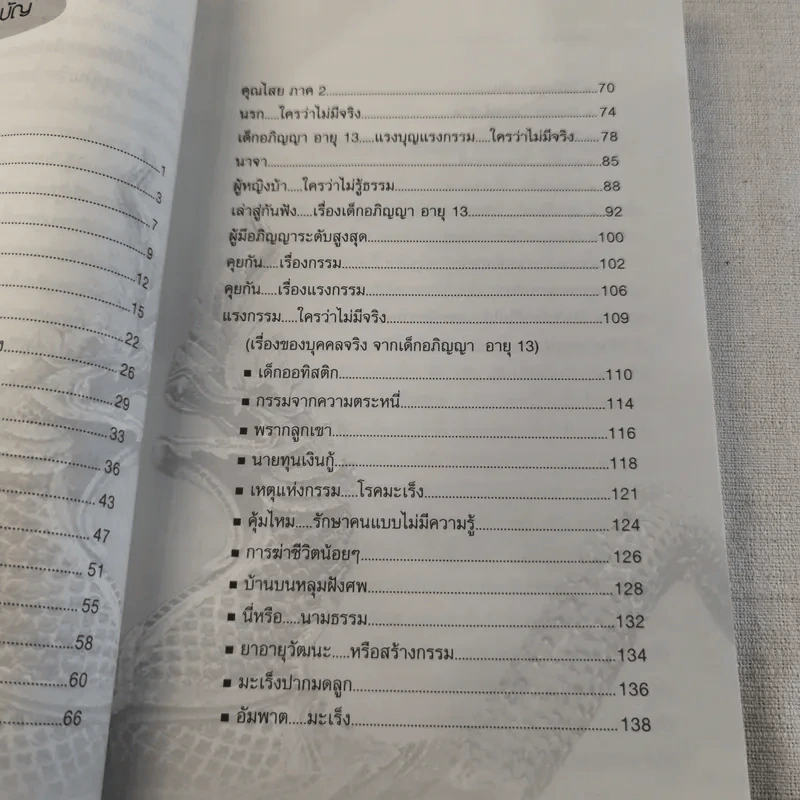 บัญ
1
3
7
9
12
15
22
26
29
33
36
43
47
51
55
58
60
66
คุณไสย ภาค 2..........70
นรก....ใครว่าไม่มีจริง..........74
เด็กอภิญญา อายุ 13....แรงบุญแรงกรรม....ใครว่าไม่มีจริง.......78
นาจา..........85
ผู้หญิงบ้า....ใครว่าไม่รู้ธรรม..........88
เล่าสู่กันฟัง....เรื่องเด็กอภิญญา อายุ 13..........92
ผู้มีอภิญญาระดับสูงสุด..........100
คุยกัน.....เรื่องกรรม..........102
คุยกัน.....เรื่องแรงกรรม..........106
แรงกรรม.....ใครว่าไม่มีจริง..........109
(เรื่องของบุคคลจริง จากเด็กอภิญญา อายุ 13)
■ เด็กออทิสติก..........110
■ กรรมจากความตระหนี่..........114
■ พรากลูกเขา..........116
■ นายทุนเงินกู้..........118
■ เหตุแห่งกรรม.....โรคมะเร็ง..........121
■ คุ้มไหม.....รักษาคนแบบไม่มีความรู้..........124
■ การฆ่าชีวิตน้อยๆ..........126
■ บ้านบนหลุมฝังศพ..........128
■ นี่หรือ.....นามธรรม..........132
■ ยาอายุวัฒนะ.....หรือสร้างกรรม..........134
■ มะเร็งปากมดลูก..........136
■ อัมพาต.....มะเร็ง..........138